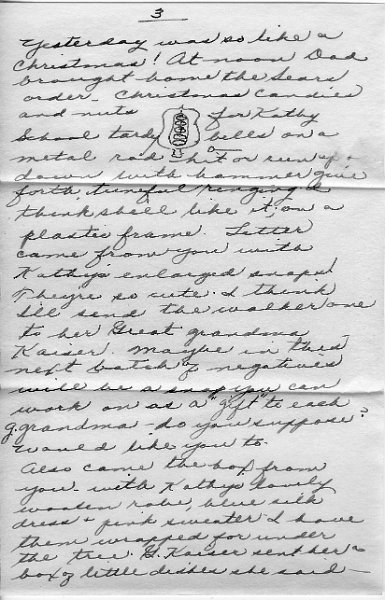 3
Yesterday was so like a
Christmas! At noon Dad
brought home the Sears
order - Christmas candies
and nuts for Kathy
School tardy bells on a
metal rod - hit or run up +
down with hammer give
forth tuneful ringing a
think shell like it; on a
plastic frame. Letter
came from you with
Kathy's enlarged snaps!
They're so cute. I think
I'll send the walker one
to her Great grandma
Kaiser. Maybe in this
next batch of negatives
will be a snap you can
work on as a "gift" to each
g. grandma - do you suppose?
Would like you to.
Also came the box from
you - with Kathy's lovely
woolen robe, blue silk
dress + pink sweater. I have
them wrapped for under
the tree. G. Kaiser sent her a
box of little dishes she said -